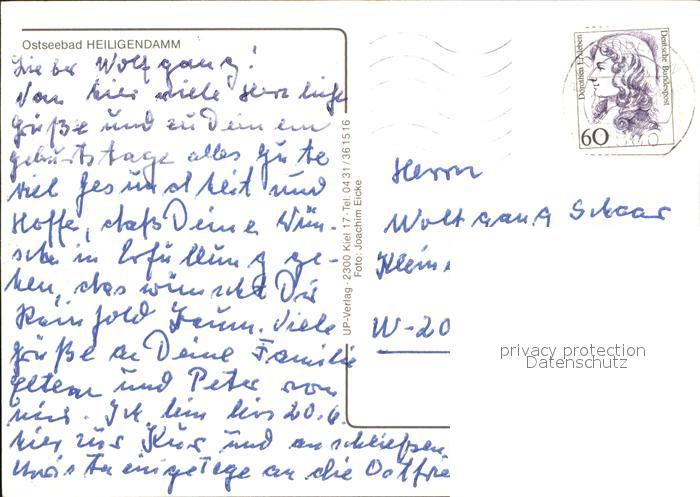 Ostseebad HEILIGENDAMM
Lieber Wolfgang!
Von hier viele Herzliche
Grüße und zu Deinem
geburtstage alles Gute
viel Gesundheit und
Hoffe, daß Deine Wün-
sche in Erfüllung ge-
hen, das wünscht Dir
Reinhold Viele
Grüße an Deine Familie
Eltern und Peter von
mir. Ich bin bis 20.6.
hier zur Kur und anschließen
ein Tage an die Ostfrie
UP-Verlag · 2300 Kiel 17 · Tel. 04 31 / 36 15 16
Foto: Joachim Eicke
Dorothea Erxleben
Deutsche Bundespost
60
Herrn
Wolfgang Schaar
Klein
W-20
privacy protection
Datenschutz